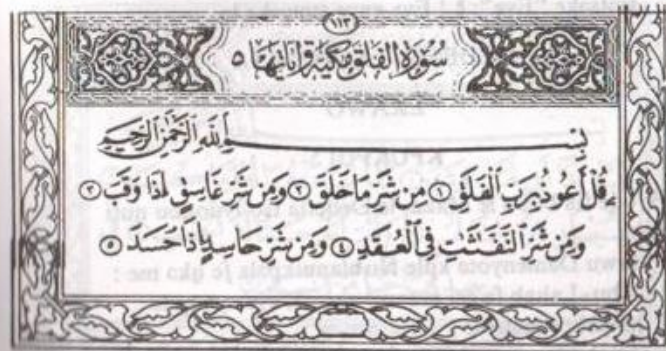 ١١٣
سُورَةُ الْفَلَقِ مَكِّيَّةٌ وَآيَاتُهَا ٥
بِسْمِ اللَّهِ الرَّحْمَٰنِ الرَّحِيمِ
قُلْ أَعُوذُ بِرَبِّ الْفَلَقِ ١ مِن شَرِّ مَا خَلَقَ ٢ وَمِن شَرِّ غَاسِقٍ إِذَا وَقَبَ ٣
وَمِن شَرِّ النَّفَّٰثَٰتِ فِي الْعُقَدِ ٤ وَمِن شَرِّ حَاسِدٍ إِذَا حَسَدَ ٥